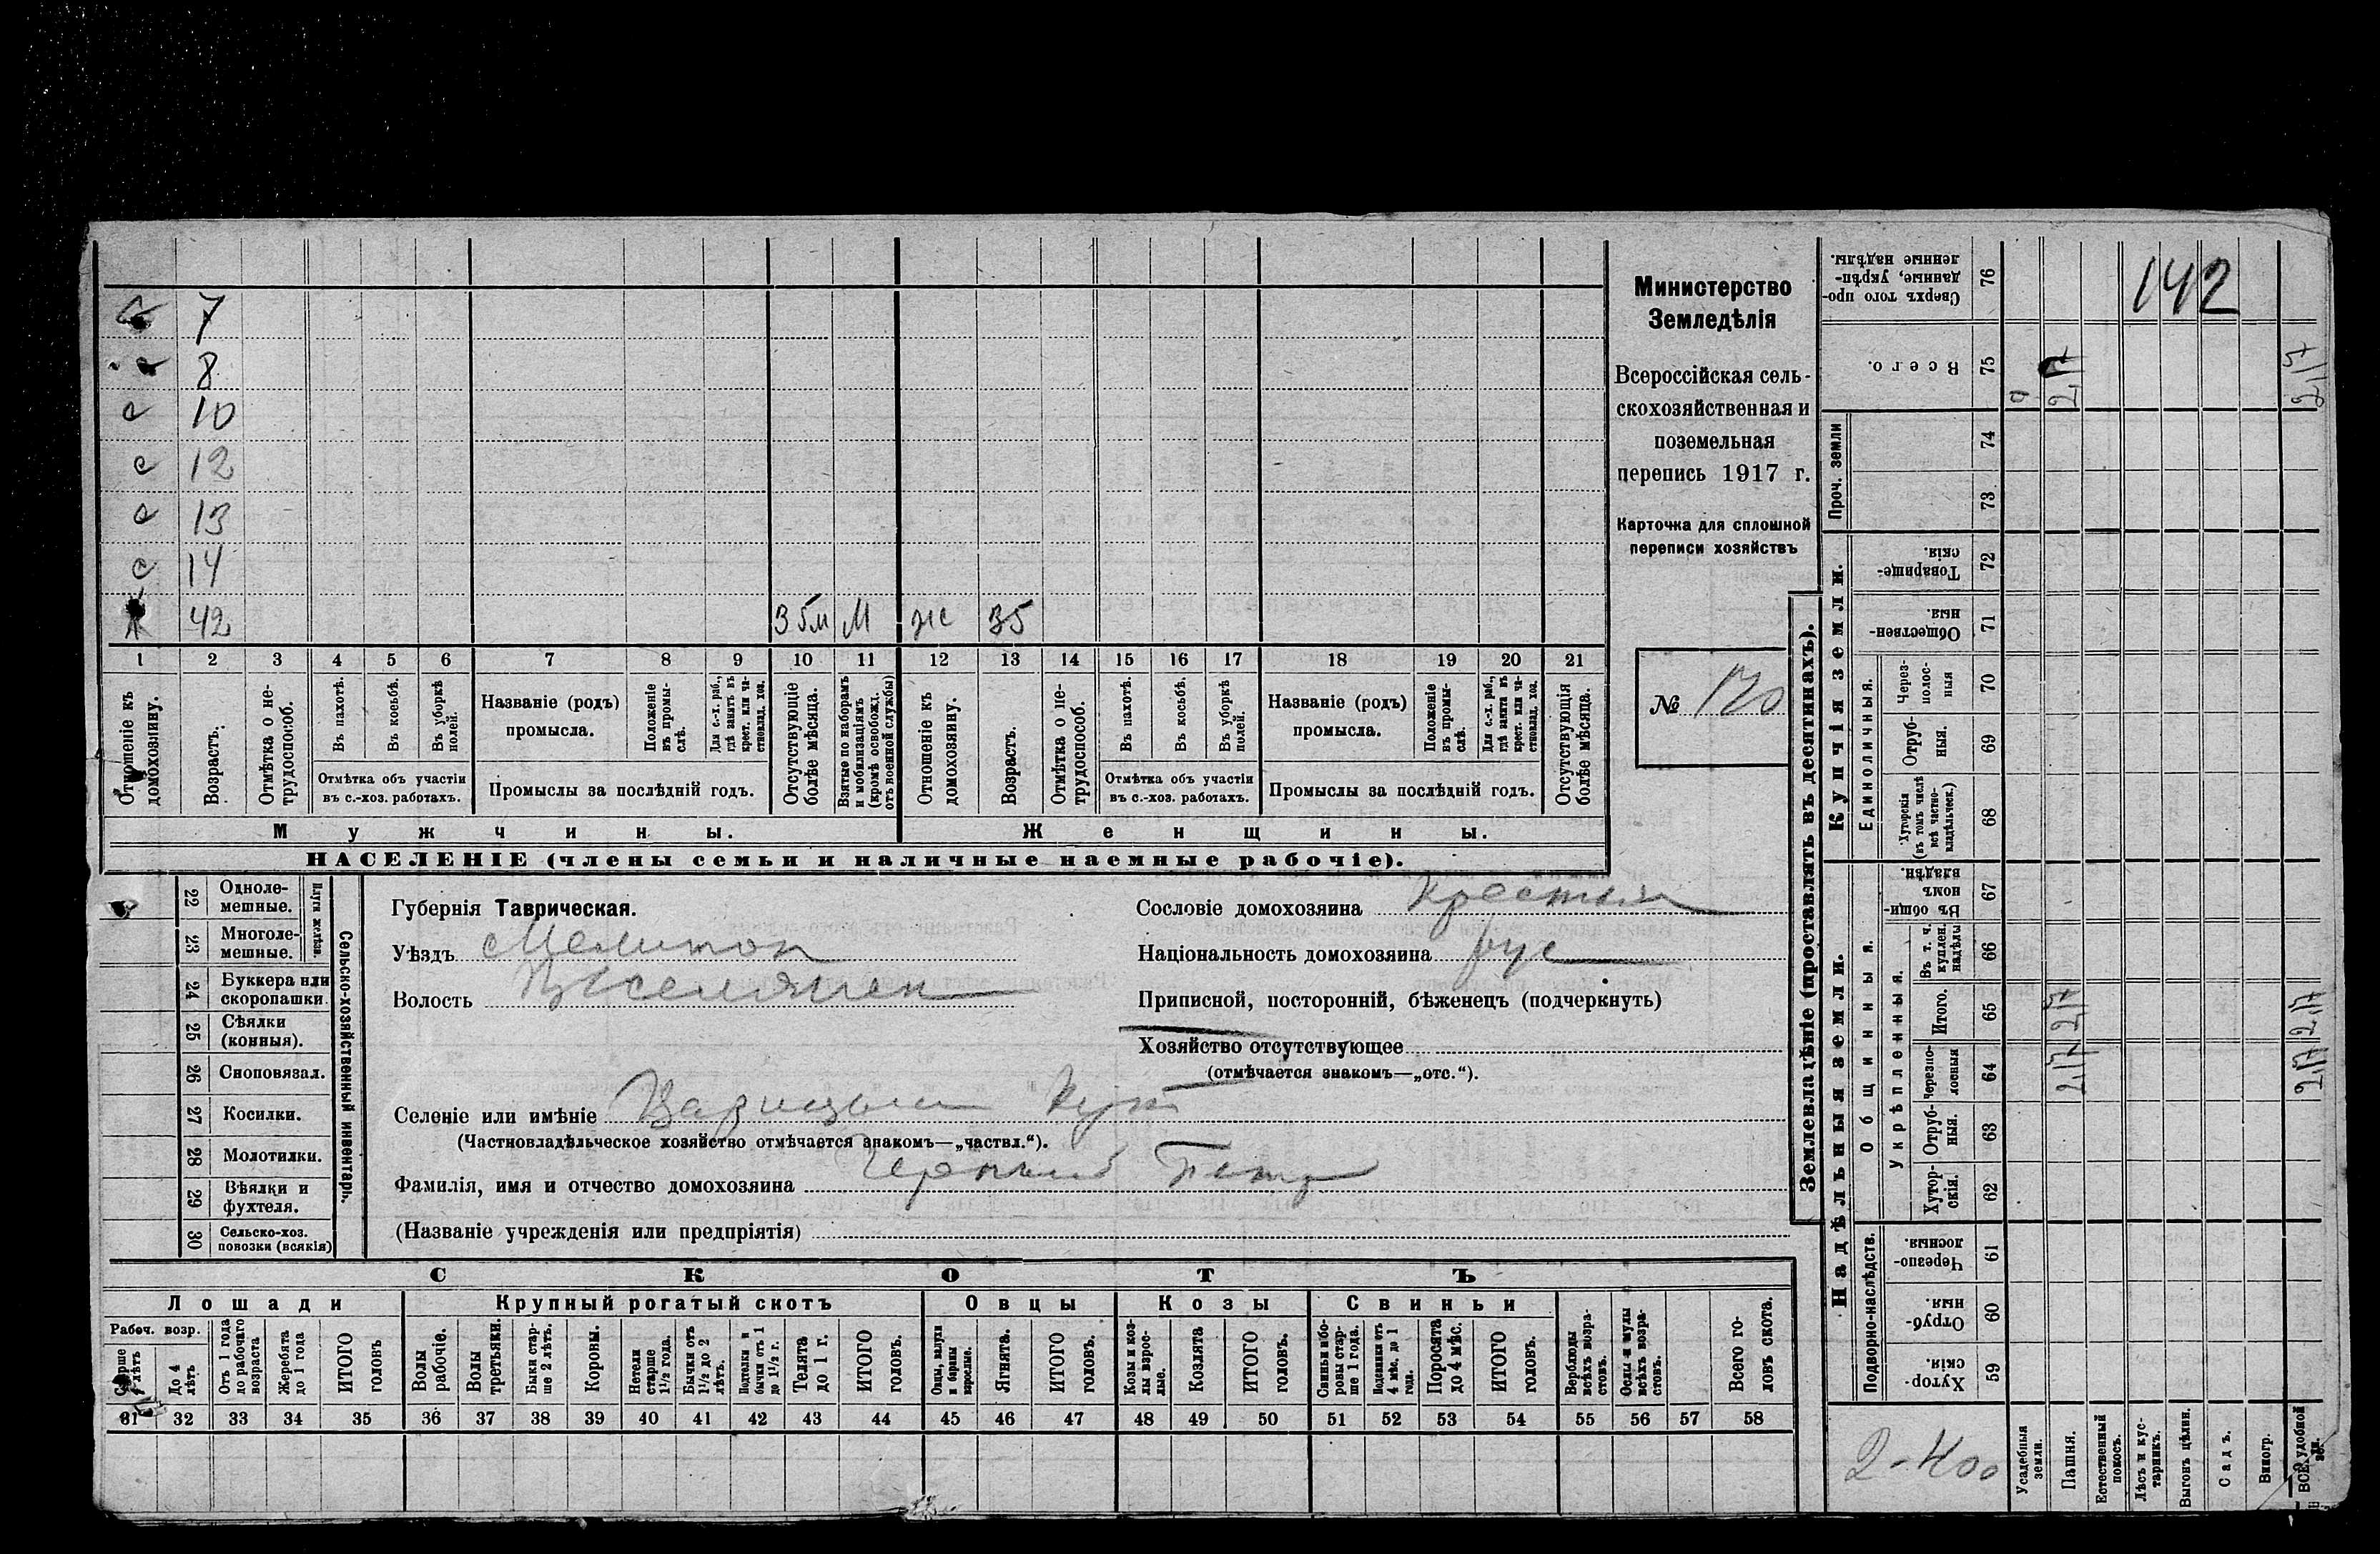 с 7
с 8
с 10
с 12
с 13
с 14
х 42 35м М жс 35
1 2 3 4 5 6 7 8 9 10 11 12 13 14 15 16 17 18 19 20 21
Отношеніе къ домохозяину.
Возрастъ.
Отмѣтка о нетрудоспособ.
Въ пахотѣ.
Въ косьбѣ.
Въ уборкѣ полей.
Отмѣтка объ участіи въ с.-хоз. работахъ.
Названіе (родъ) промысла.
Положеніе въ промыслѣ.
Для с.-х. раб., гдѣ занятъ въ крест. или частновлад. хоз.
Промыслы за послѣдній годъ.
Отсутствующіе болѣе мѣсяца.
Взятые по наборамъ и мобилизаціямъ (кромѣ освобожд. отъ военной службы)
Отношеніе къ домохозяину.
Возрастъ.
Отмѣтка о нетрудоспособ.
Въ пахотѣ.
Въ косьбѣ.
Въ уборкѣ полей.
Отмѣтка объ участіи въ с.-хоз. работахъ.
Названіе (родъ) промысла.
Положеніе въ промыслѣ.
Для с.-х. раб., гдѣ занята въ крест. или частновлад. хоз.
Промыслы за послѣдній годъ.
Отсутствующія болѣе мѣсяца.
Мужчины. Женщины.
НАСЕЛЕНІЕ (члены семьи и наличные наемные рабочіе).
Министерство
Земледѣлія
Всероссійская сель-
скохозяйственная и
поземельная
перепись 1917 г.
Карточка для сплошной
переписи хозяйствъ
№ 170
22 Однолемешные.
23 Многолемешные.
Плуги желѣзн.
24 Буккера или скоропашки.
25 Сѣялки (конныя).
26 Сноповязал.
27 Косилки.
28 Молотилки.
29 Вѣялки и фухтеля.
30 Сельско-хоз. повозки (всякія)
Сельско-хозяйственный инвентарь.
Губернія Таврическая.
Уѣздъ Мелитоп
Волость
Селеніе или имѣніе Царицын Кут
(Частновладѣльческое хозяйство отмѣчается знакомъ—„частвл.“).
Фамилія, имя и отчество домохозяина Черный Петр
(Названіе учрежденія или предпріятія)
Сословіе домохозяина Крестьян
Національность домохозяина рус
Приписной, посторонній, бѣженецъ (подчеркнуть)
Хозяйство отсутствующее
(отмѣчается знакомъ—„отс.“).
СКОТЪ
Лошади Крупный рогатый скотъ Овцы Козы Свиньи
Рабоч. возр.
Старше 4 лѣтъ
До 4 лѣтъ
Отъ 1 года до рабочаго возраста
Жеребята до 1 года
ИТОГО головъ
Волы рабочіе.
Волы третьяки.
Быки старше 2 лѣтъ.
Коровы.
Нетели старше 1½ года.
Бычки отъ 1½ до 2 лѣтъ.
Подтелки и бычки отъ 1 до 1½ г.
Телята до 1 г.
ИТОГО головъ.
Овцы, валухи и бараны взрослые.
Ягнята.
ИТОГО головъ.
Козы и козлы взрослые.
Козлята
ИТОГО головъ.
Свиньи и боровы старше 1 года.
Подсвинки отъ 4 мѣс. до 1 года.
Поросята до 4 мѣс.
ИТОГО головъ.
Верблюды всѣхъ возрастовъ.
Ослы и мулы всѣхъ возрастовъ.
Всего головъ скота.
31 32 33 34 35 36 37 38 39 40 41 42 43 44 45 46 47 48 49 50 51 52 53 54 55 56 57 58
Землевладѣніе (проставлять въ десятинахъ).
Надѣльныя земли. Купчія земли. Проч. земли
Подворно-наслѣдств. Общинныя. Укрѣпленныя. Единоличныя.
Сверхъ того проданные, укрѣпленные надѣлы. 76
Всего. 75
74
73
Товарищескія. 72
Общественныя. 71
Черезполосныя 70
Отрубныя. 69
Хуторскія (въ томъ числѣ всѣ частновладѣльческ.) 68
Въ общинномъ владѣн. 67
Въ т. ч. куплен. надѣлы 66
Итого. 65
Черезполосныя 64
Отрубныя. 63
Хуторскія. 62
Черезполосныя. 61
Отрубныя. 60
Хуторскія 59
142
2,17
2,17
2,17 2,17
2,17 2,17
2-400
Усадебныя земли.
Пашня.
Естественный покосъ.
Лѣсъ и кустарникъ.
Выгонъ цѣлин.
Садъ.
Виногр.